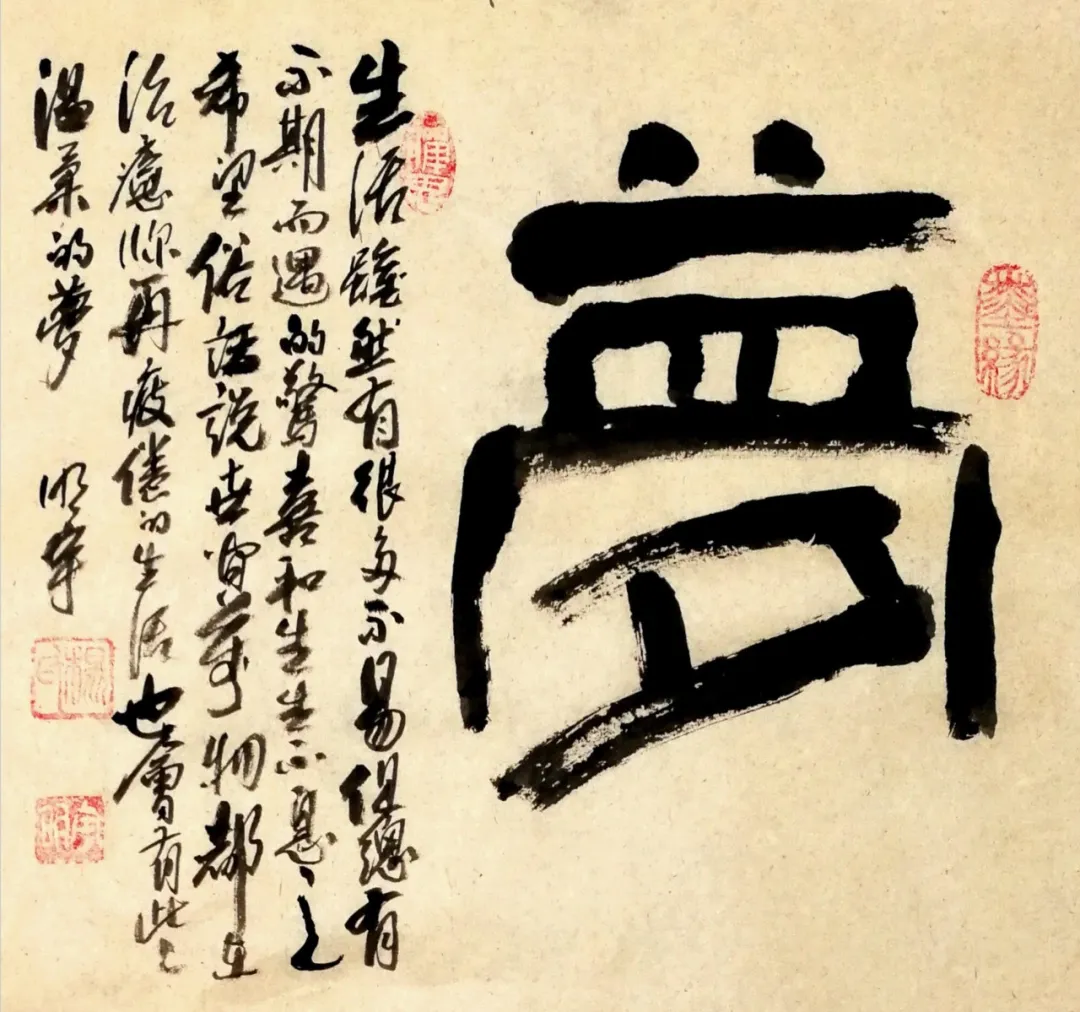 夢
生活雖然有很多不易但總有
不期而遇的驚喜和生生不息之
希望俗話說世間萬物都在
治癒你再疲倦的生活也會有些
溫柔的夢
明軍
墨緣